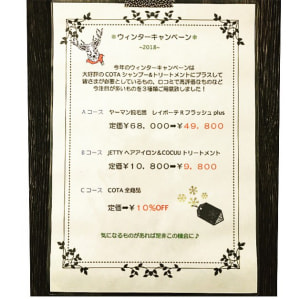 ※ウィンターキャンペーン※
~2018~
今年のウィンターキャンペーンは
大好評の COTA シャンプー&トリートメントにプラスして
皆さまが必要としているもの、口コミで高評価なものなど
今注目が高いものを3種類ご用意致しました!
A コース ヤーマン脱毛器 レイボーテRフラッシュ plus
定価¥68,000➡¥49,800
B コース JETTY ヘアアイロン&COCUU トリートメント
定価¥10,800➡¥9,800
C コース COTA 全商品
定価➡¥10%OFF
気になるものがあれば是非この機会に♪